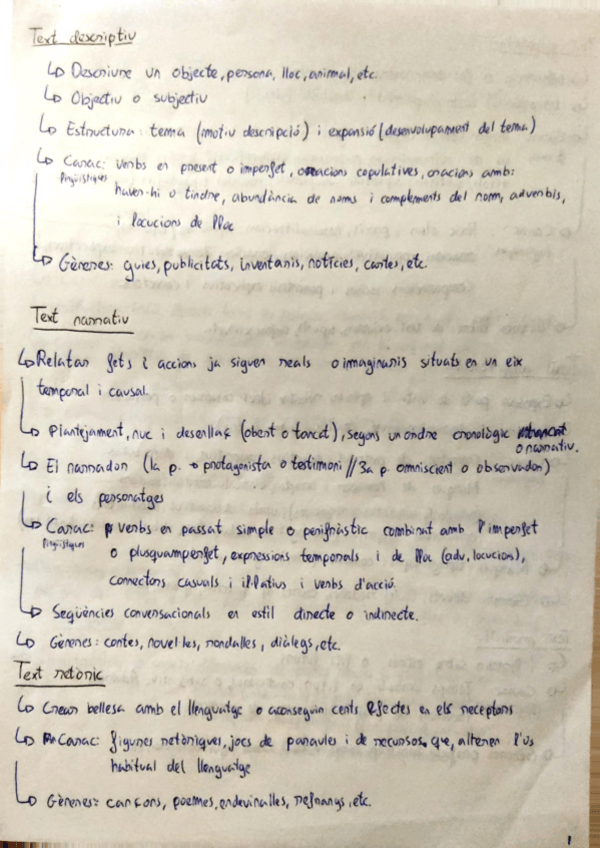 Text descriptiu
↳ Descriure un objecte, persona, lloc, animal, etc.
↳ Objectiu o subjectiu
↳ Estructura: tema (motiu descripció) i expansió (desenvolupament del tema)
↳ Carac: verbs en present o imperfet, oracions copulatives, oracions amb:
lingüístiques
haver-hi o tindre, abundància de noms i complements del nom, adverbis,
i locucions de lloc
↳ Gèneres: guies, publicitats, inventaris, notícies, cartes, etc.
Text narratiu
↳ Relatar fets i accions ja siguen reals o imaginaris situats en un eix
temporal i causal.
↳ Plantejament, nuc i desenllaç (obert o tancat), segons un ordre cronològic
o narratiu.
↳ El narrador (1a p. → protagonista o testimoni // 3a p. omniscient o observador)
i els personatges
↳ Carac: verbs en passat simple o perifràstic combinat amb l'imperfet
lingüístiques
o plusquamperfet, expressions temporals i de lloc (adv. locucion),
connectors casuals i il·latius i verbs d'acció.
↳ Seqüències conversacionals en estil directe o indirecte.
↳ Gèneres: contes, novel·les, rondalles, diàlegs, etc.
Text retòric
↳ Crear bellesa amb el llenguatge o aconseguir certs efectes en els receptors
↳ Carac: figures retòriques, jocs de paraules i de recursos, que, alteren l'ús
habitual del llenguatge
↳ Gèneres: cançons, poemes, endevinalles, refranys, etc.
1